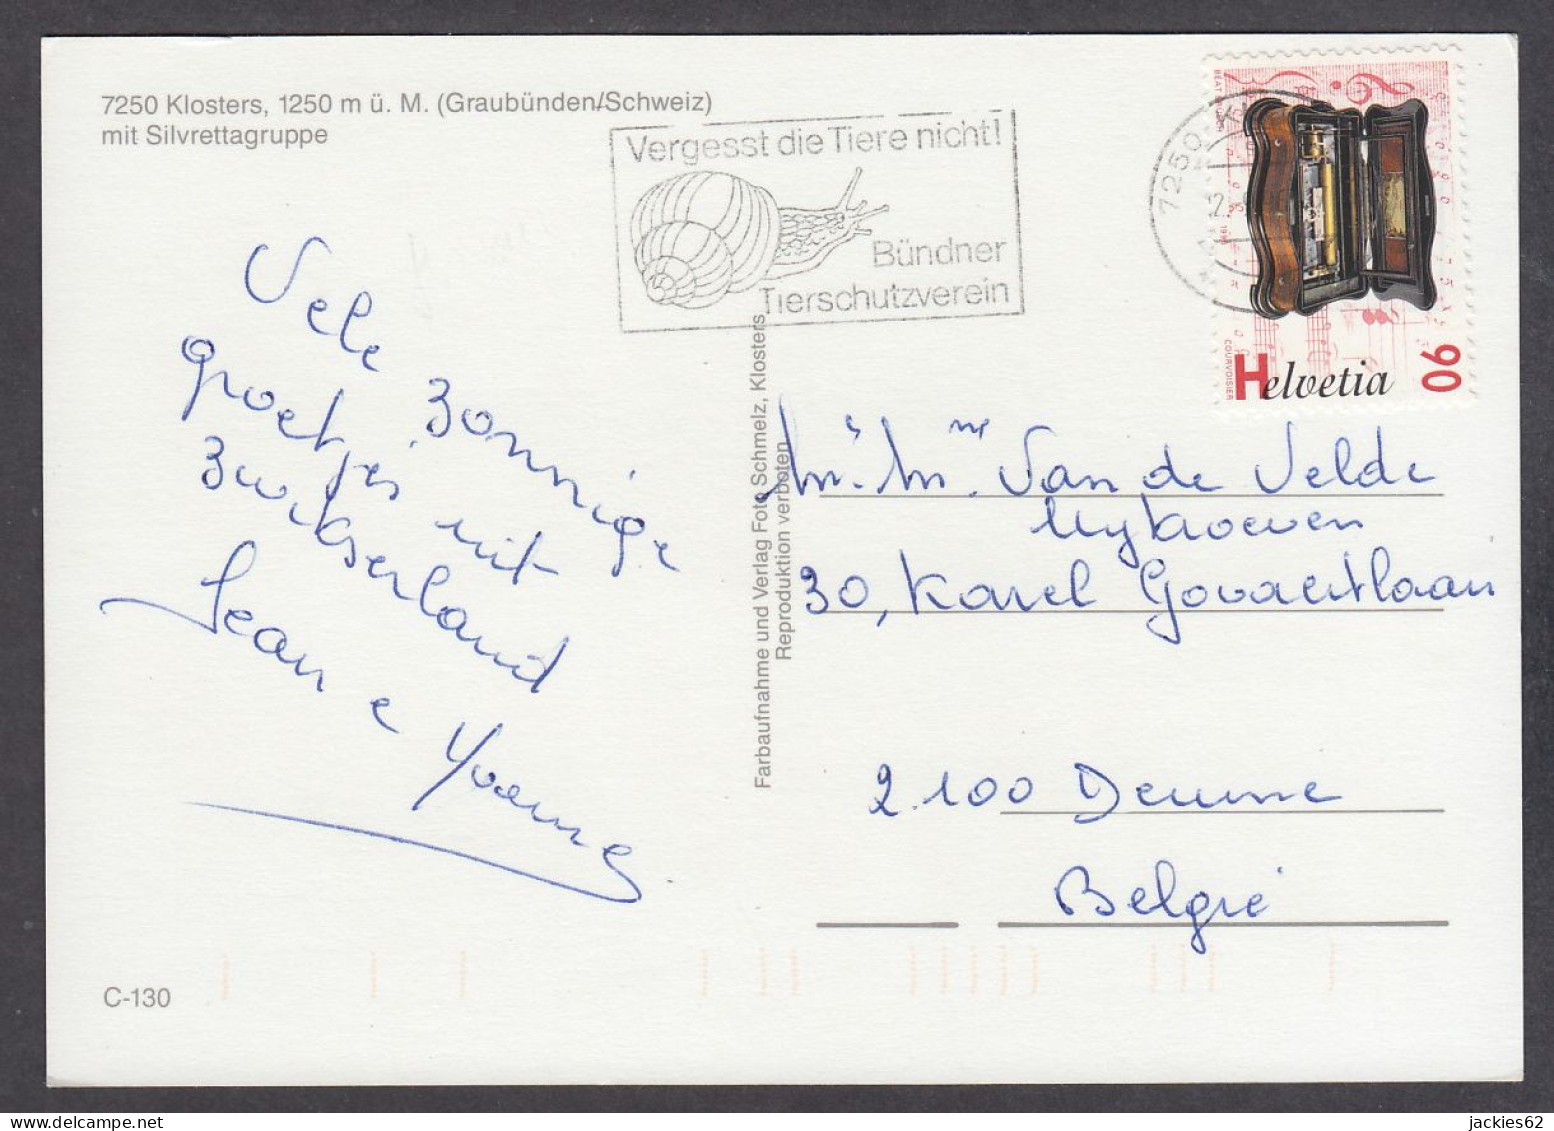 7250 Klosters, 1250 m ü. M. (Graubünden/Schweiz)
mit Silvrettagruppe
Vergesst die Tiere nicht!
Bündner
Tierschutzverein
7250 KL
COURVOISIER
Helvetia
90
Vele zonnige
groetjes uit
Zwitserland
Jean e Yvonne
Farbaufnahme und Verlag Foto Schmelz, Klosters
Reproduktion verboten
Mr. Mme. Van de Velde
Uytroeven
30, Karel Govaertlaan
2.100 Deurne
België
C-130
jackies62